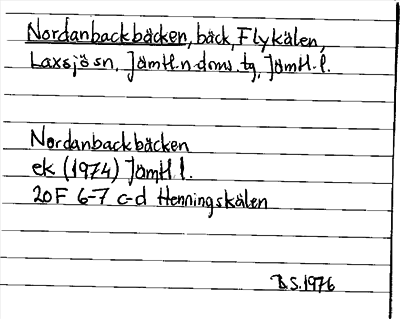 Nordanbackbäcken, bäck, Flykälen,
Laxsjö sn, Jämtl.n.doms.tg, Jämtl.l.
Nordanbackbäcken
ek (1974) Jämtl l.
20F 6-7 c-d Henningskälen
B.S.1976